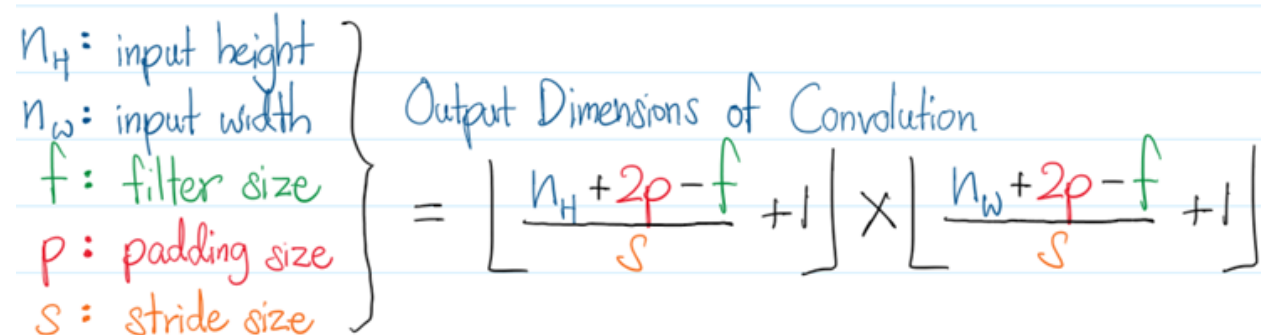 n_H : input height
n_w : input width
f : filter size
p : padding size
s : stride size
Output Dimensions of Convolution
= ⌊ (n_H + 2p - f) / s + 1 ⌋ × ⌊ (n_w + 2p - f) / s + 1 ⌋